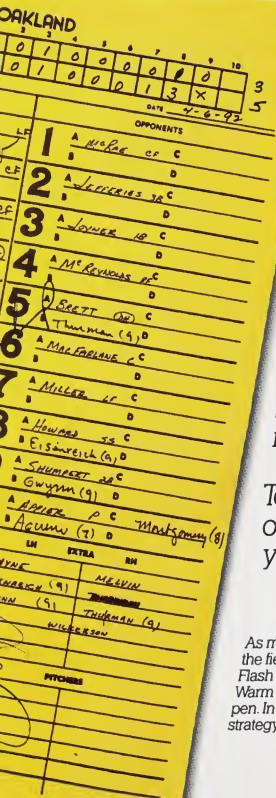 OAKLAND
2 3 4 5 6 7 8 9 10
0 1 0 0 0 0 0 0 3
0 1 0 0 0 1 3 X 5
DATE 4-6-92
OPPONENTS
LF 1 A McRAE CF C
B D
CF 2 A JEFFERIES 3B C
B D
3 A JOYNER 1B C
B D
4 A McREYNOLDS RF C
B D
5 A BRETT DH C
B Thurman (9) D
6 A MACFARLANE C C
B D
7 A MILLER LF C
B D
A HOWARD SS C
B Eisenreich (9) D
A SHUMPERT 2B C
B Gwynn (9) D
A APPIER P C Montgomery (8)
B Aquino (7) D
LH EXTRA RH
MELVIN
(9)
(9) THURMAN (9)
WILKERSON
PITCHERS
As m
the fie
Flash
Warm
pen. In
strategy